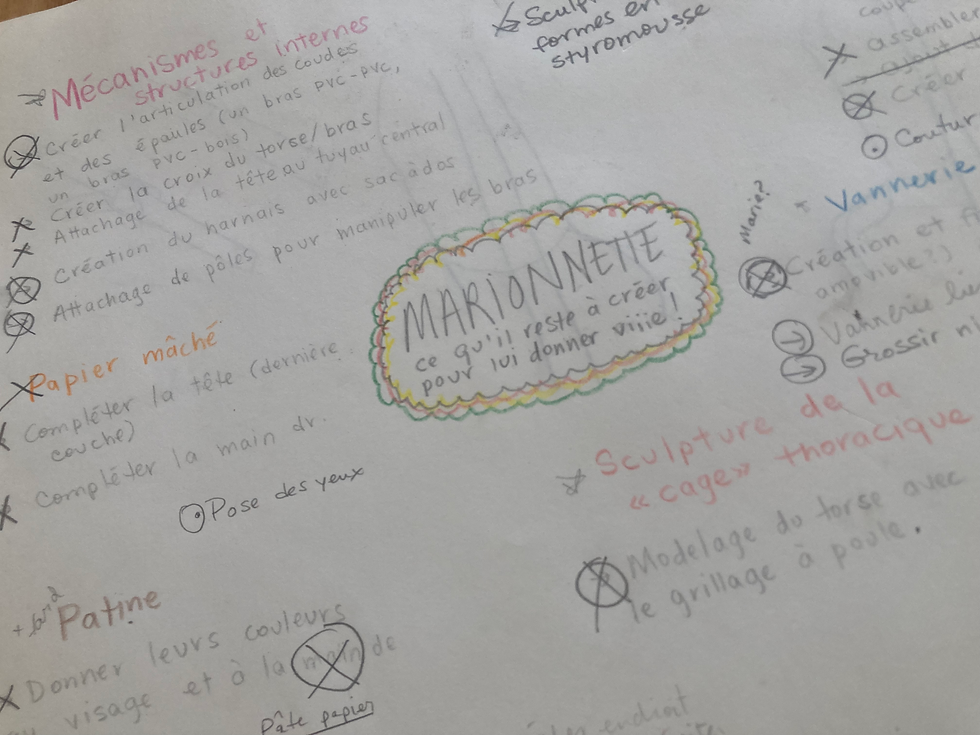 Mécanismes et
structures internes
Créer l'articulation des coudes
et des épaules (un bras pvc-pvc,
un bras pvc-bois)
Créer la croix du torse/bras
Attachage de la tête au tuyau central
Création du harnais avec sac à dos
Attachage de pôles pour manipuler les bras
Papier mâché
Compléter la tête (dernière
couche)
Compléter la main dr.
Pose des yeux
Patine
Donner leurs couleurs
visage et à la main de
Pâte papier
formes en
styromousse
MARIONNETTE
ce qu'il reste à créer
pour lui donner viiie!
assembler
Créer
Mariè?
Vannerie
Création et
amovible?)
Vannerie
Grossir
Sculpture de la
« cage » thoracique
Modelage du torse avec
le grillage à poule.